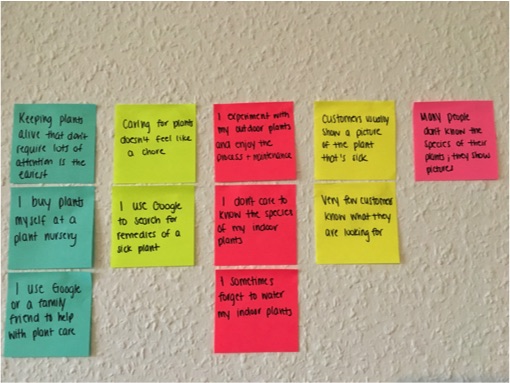 Keeping plants
alive that don't
require lots of
attention is the
easiest
I buy plants
myself at a
plant nursery
I use Google
or a family
friend to help
with plant care
Caring for plants
doesn't feel like
a chore
I use Google
to search for
remedies of a
sick plant
I experiment with
my outdoor plants
and enjoy the
process + maintenance
I don't care to
know the species
of my indoor
plants
I sometimes
forget to water
my indoor plants
Customers usually
show a picture
of the plant
that's sick
Very few customers
know what they
are looking for
Many people
don't know the
species of their
plants, they show
pictures